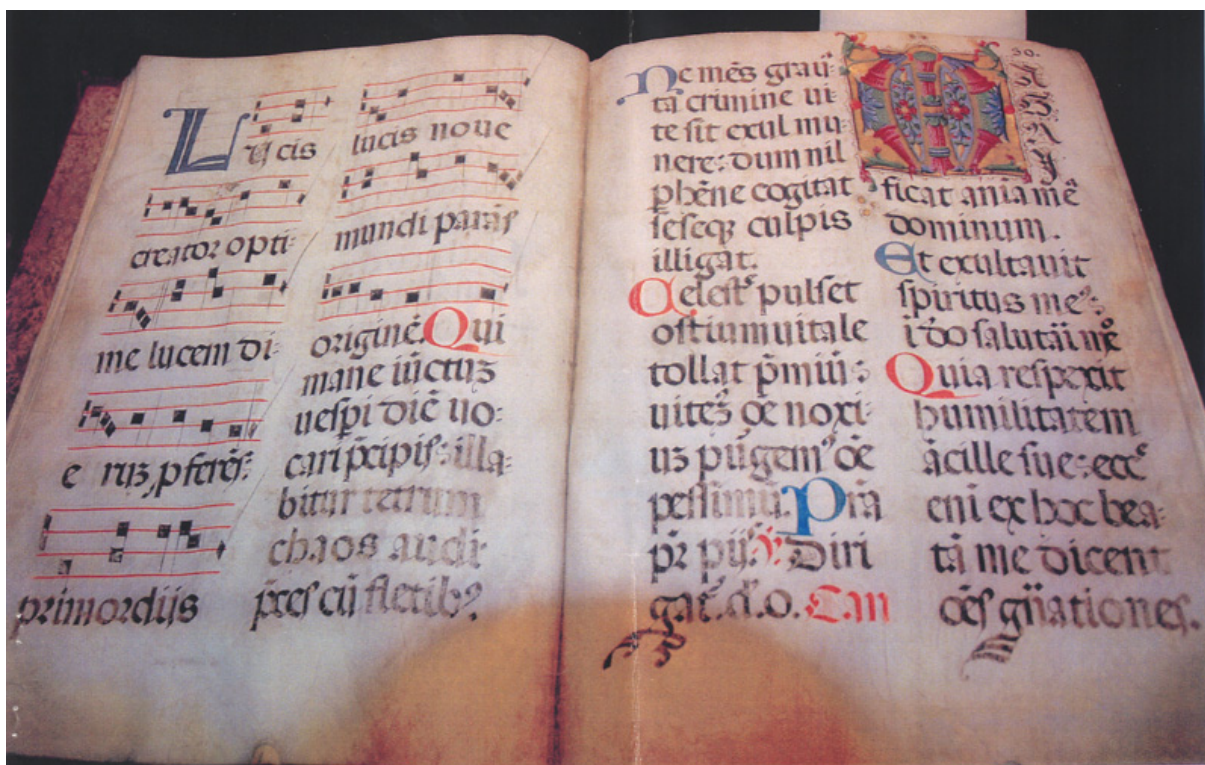 Lucis
creator opti:
me lucem di:
e ruʒ pferēs:
primordijs
lucis noue
mundi parās
originē. Qui
mane iūctuʒ
uespi diē uo:
cari p̄cipis: illa:
bitur tetrum
chaos audi:
p̄ces cū fletibꝰ
Ne mēs graui:
ta crimine ui:
te sit exul mu:
nere: dum nil
phēne cogitat
seseqȝ culpis
illigat.
Celestꝰ pulset
ostium uitale
tollat p̄miū:
uitemꝰ oē noxi:
uʒ purgemꝰ oē
pessimū. Pra
pr̄ pijs. ℣. Diri
gat. d. o. Can
30.
M
ficat aniā meā
dominum.
Et exultauit
spiritus meꝰ:
ī deo salutāi meo
Quia respexit
humilitatem
ācille sue: ecce
eni ex hoc bea:
tā me dicent
oēs gn̄ationes.